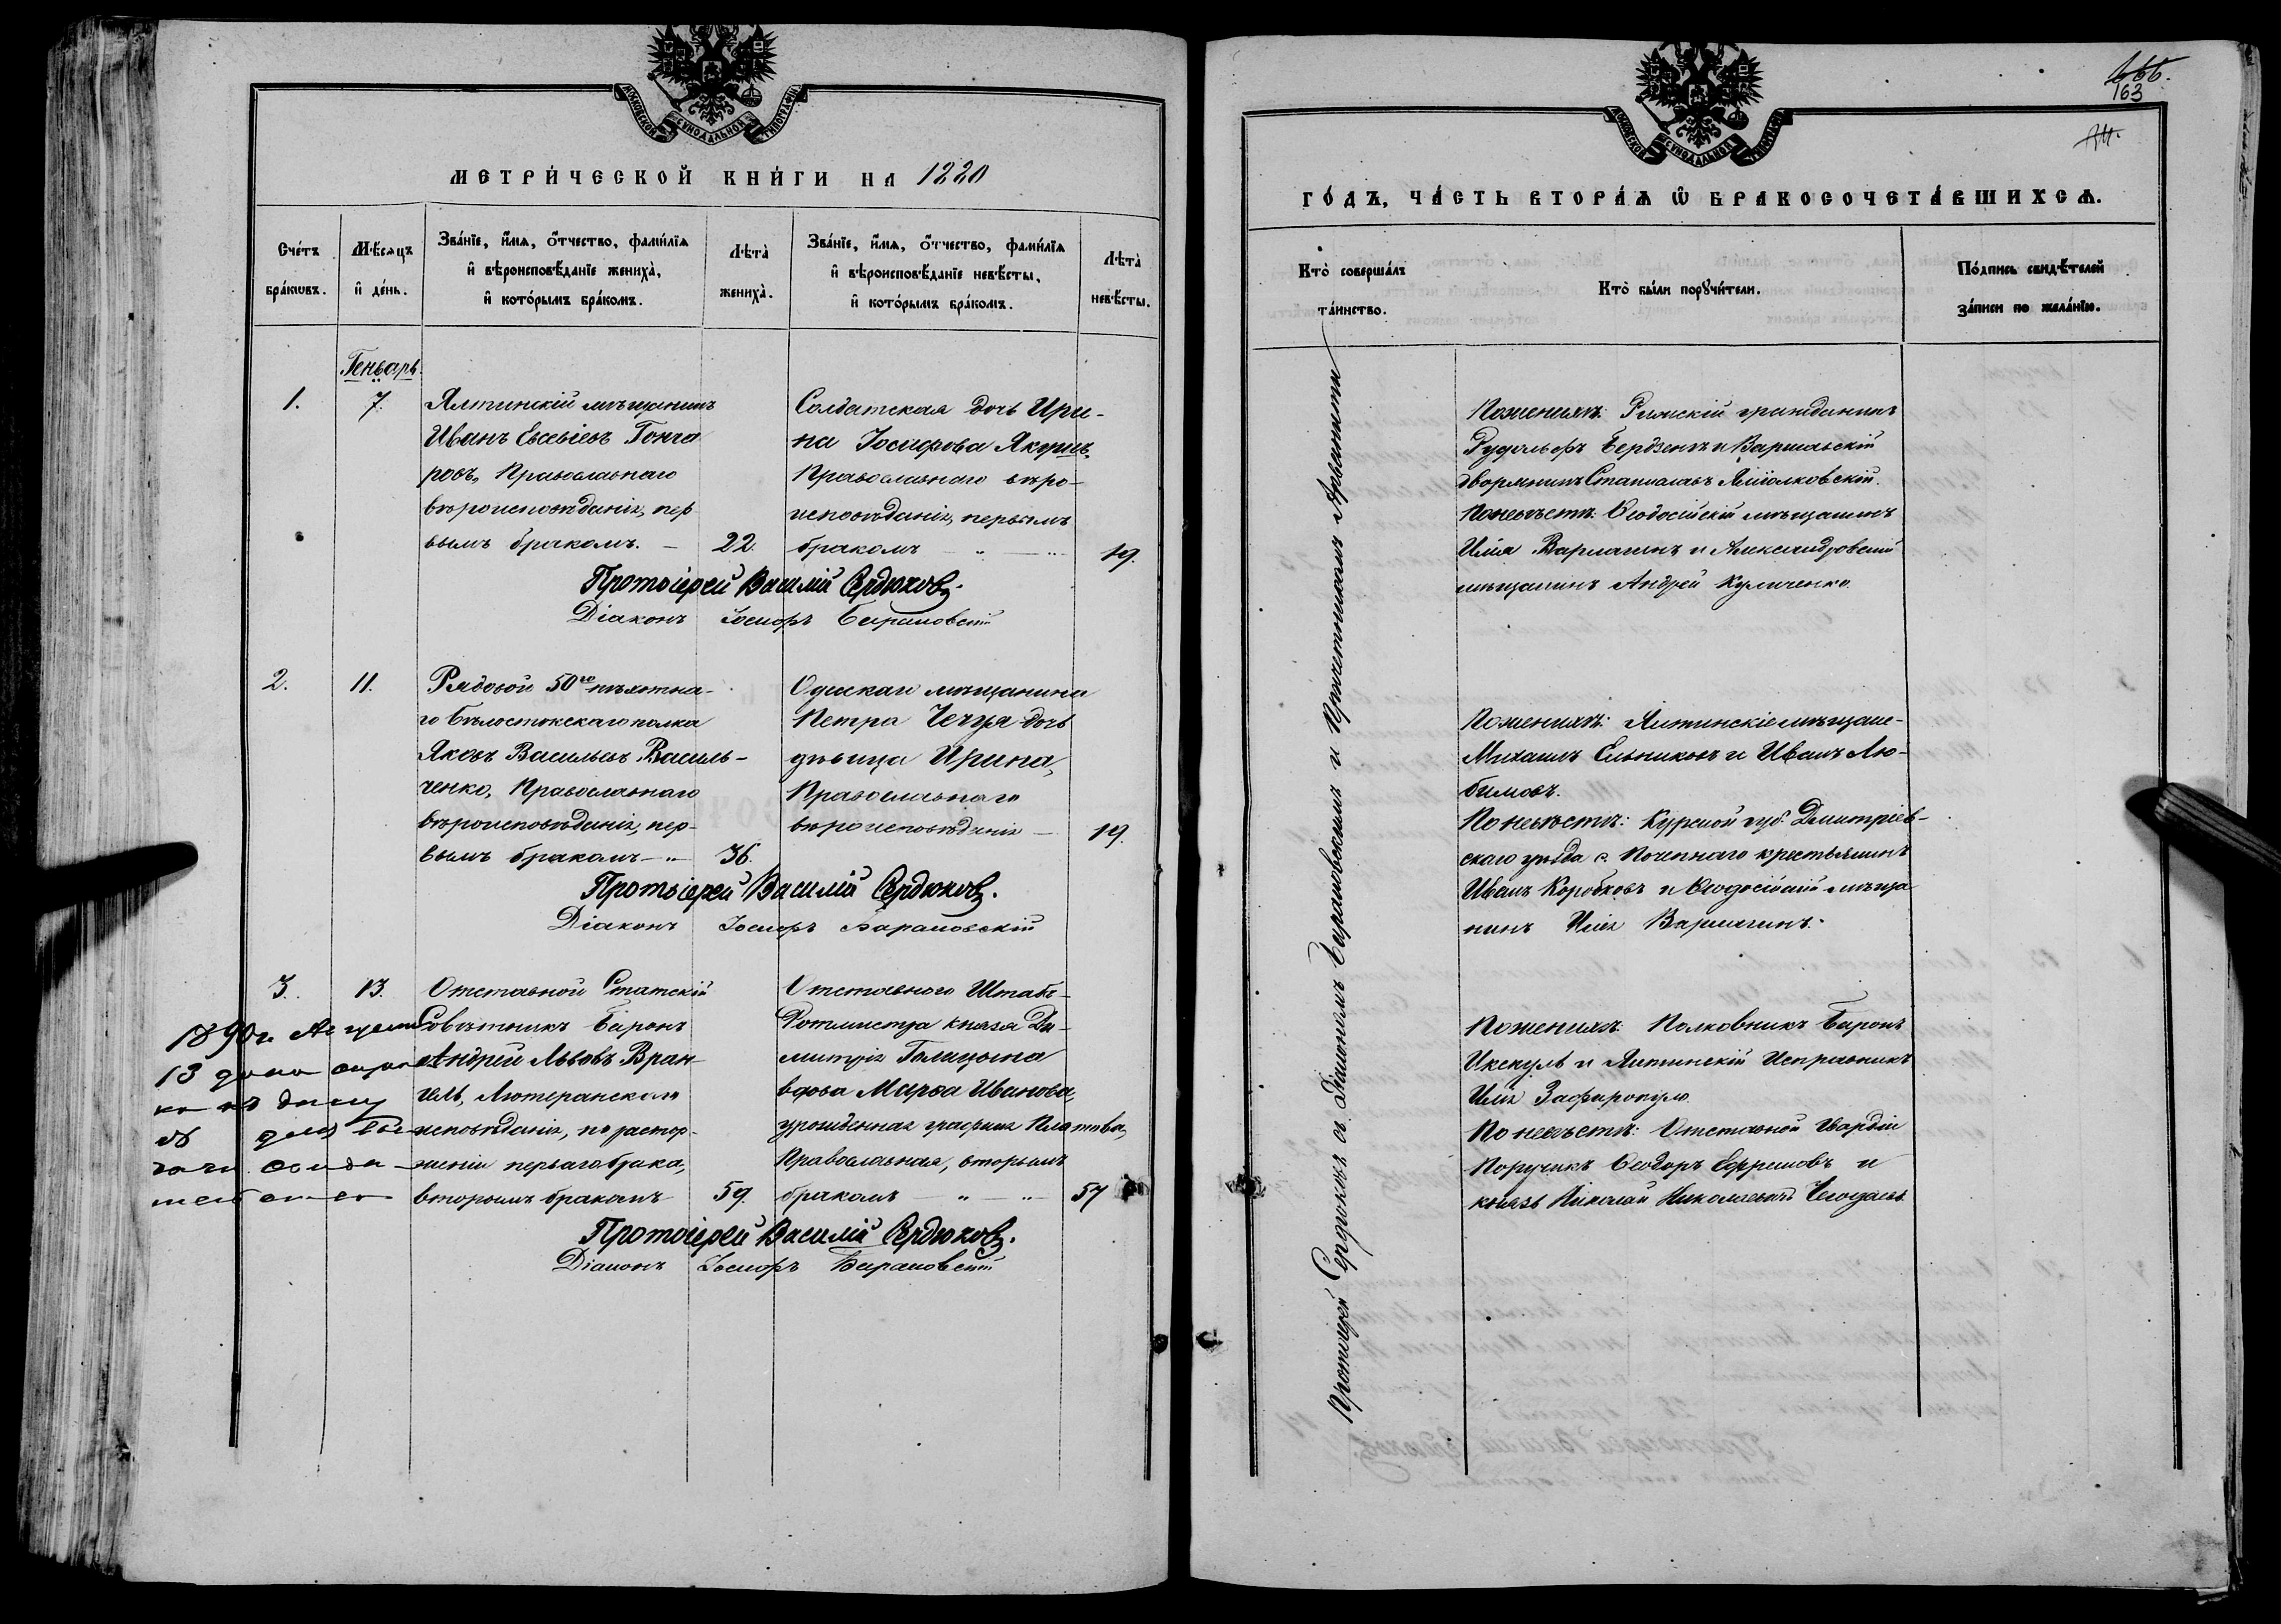 МОСКОВСКОЙ СУНОДАЛЬНОЙ ТИПОГРАФІИ
МЕТРИ́ЧЕСКОЙ КНИ́ГИ НА
Сче́тъ бра́кѡвъ.
Мѣ́сяцъ и҆ де́нь.
Зва́нїе, и҆́мѧ, ѻ҆́тчество, фами́лїѧ
и҆ вѣроисповѣ́данїе жениха̀,
и҆ кото́рымъ бра́комъ.
Лѣта̀ жениха̀.
Зва́нїе, и҆́мѧ, ѻ҆́тчество, фами́лїѧ
и҆ вѣроисповѣ́данїе невѣ́сты,
и҆ кото́рымъ бра́комъ.
Лѣта̀ невѣ́сты.
Геньварь.
1.
7.
Ялтинскій мѣщанинъ
Иванъ Евсевіевъ Гонча
ровъ, Православнаго
вѣроисповѣданія, пер
вымъ бракомъ. —
22.
Солдатская дочь Ири-
на Іосифова
Православнаго вѣро-
исповѣданія, первымъ
бракомъ
19.
Протоіерей Василій Сердюковъ.
Діаконъ Іосифъ Барановскій
2.
11.
Рядовой 50го пѣхотна-
го Бѣлостокскаго полка
Яковъ Васильевъ Василь-
ченко, Православнаго
вѣроисповѣданія, пер-
вымъ бракомъ
36.
мѣщанина
Петра дочь
дѣвица Ирина,
Православнаго
вѣроисповѣданія —
19.
Протоіерей Василій Сердюковъ.
Діаконъ Іосифъ Барановскій
3.
13.
Отставной Статскій
Совѣтникъ Баронъ
Андрей Львовъ Вран-
гель, Лютеранскаго
исповѣданія, по растор-
женіи перваго брака,
вторымъ бракомъ
59.
Отставнаго Штабъ-
Ротмистра князя Ди-
митрія Голицына
вдова Марѳа Иванова,
урожденная графиня Платова,
Православная, вторымъ
бракомъ
57
1890 г.
13 дана
Протоіерей Василій Сердюковъ.
Діаконъ Іосифъ Барановскій
МОСКОВСКОЙ СУНОДАЛЬНОЙ ТИПОГРАФІИ
666.
163
ГО́ДЪ, ЧА́СТЬ ВТОРА́Ѧ Ѽ БРАКОСОЧЕТА́ВШИХСѦ.
Кто̀ соверша́лъ
та́инство.
Кто̀ бы́ли порꙋчи́тели.
По́дпись свидѣ́телей
за́писи по жела́нїю.
Протоіерей Сердюковъ съ Діакономъ Барановскимъ и Причетникомъ
По женихѣ: Римскій гражданинъ
Рудольфъ и Варшавскій
дворянинъ Станиславъ
По невѣстѣ: Ѳеодосійскій мѣщанинъ
Илія Вармагинъ и Александровскій
мѣщанинъ Андрей Куличенко.
По женихѣ: Ялтинскіе мѣщане-
Михаилъ Ельниковъ и Иванъ Лю-
бимовъ.
По невѣстѣ: Курской губ. Дмитріев-
скаго уѣзда с. Почепнаго крестьянинъ
Иванъ Коробковъ и Ѳеодосійскій мѣща
нинъ Илія Вармагинъ.
По женихѣ: Полковникъ Баронъ
Икскуль и Ялтинскій Исправникъ
Илія Зафиропуло.
По невѣстѣ: Отставной Гвардіи
Поручикъ Ѳеодоръ Ефремовъ и
князь Николай Николаевичъ